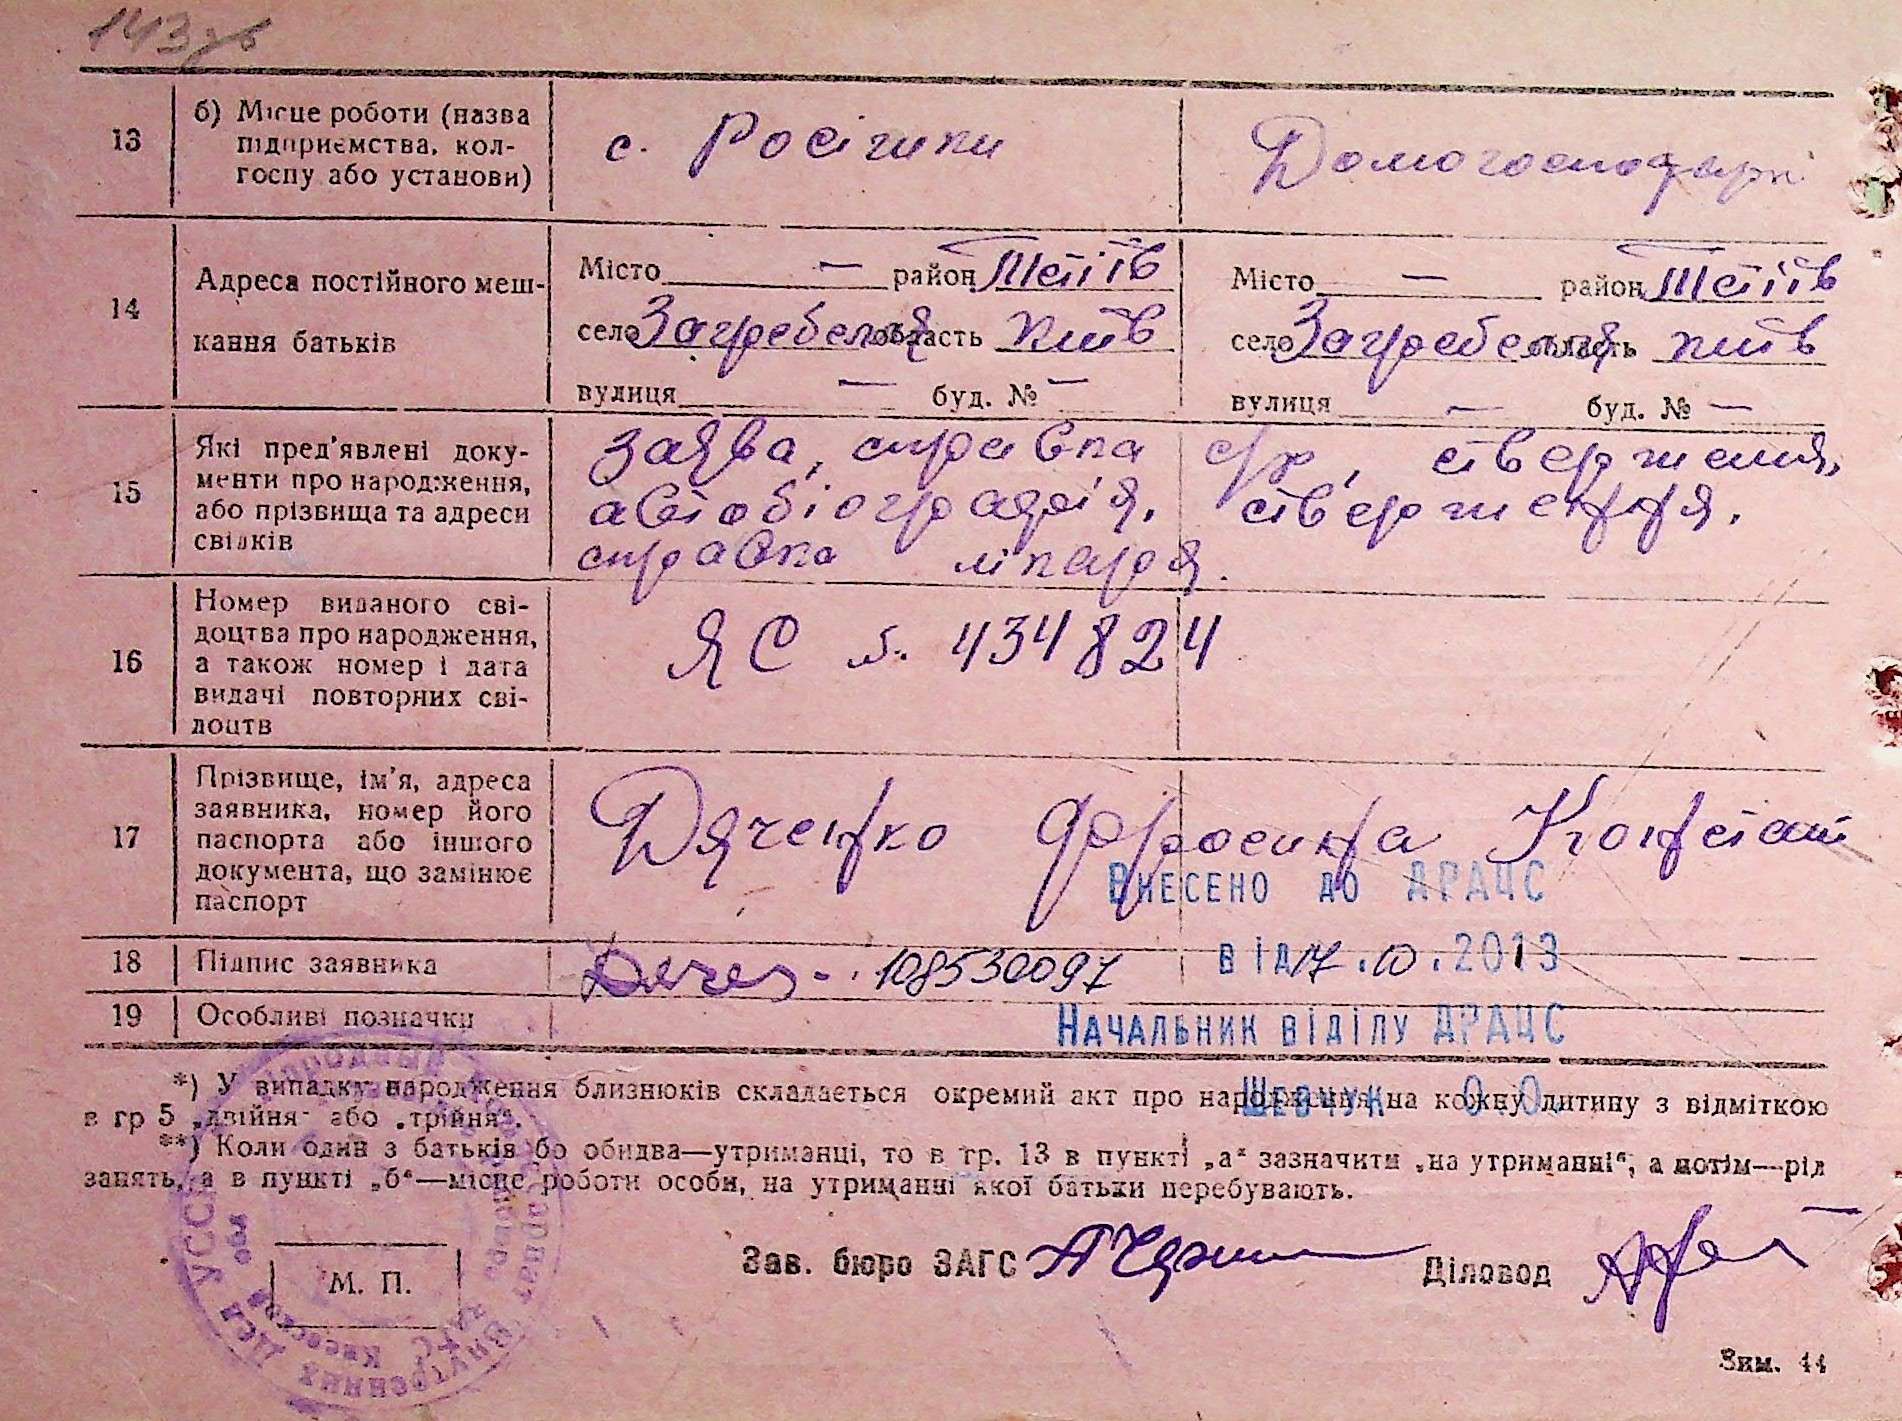 143зв
13 б) Місце роботи (назва підприємства, колгоспу або установи) с. Росішки Домогосподарк
14 Адреса постійного меш-
кання батьків
Місто — район Тетіїв Місто — район Тетіїв
село Загребелля область Київ село Загребелля область Київ
вулиця — буд. № — вулиця — буд. № —
15 Які пред'явлені доку-
менти про народження,
або прізвища та адреси
свідків
заява, справка с/р, ствержения,
автобіографія, стверження,
справка лікаря.
16 Номер виданого сві-
доцтва про народження,
а також номер і дата
видачі повторних сві-
доцтв
ЯС 434824
17 Прізвище, ім'я, адреса
заявника, номер його
паспорта або іншого
документа, що замінює
паспорт
Дяченко Фросина Констант
Внесено до ДРАЦС
18 Підпис заявника 108530097 від 17.10.2013
19 Особливі позначки
Начальник відділу ДРАЦС
Шевчук О.О.
*) У випадку народження близнюків складається окремий акт про народження на кожну дитину з відміткою
в гр 5 „двійня“ або „трійня“.
**) Коли один з батьків бо обидва—утриманці, то в гр. 13 в пункті „а“ зазначити „на утриманні“, а потім—рід
занять, а в пункті „б“—місце роботи особи, на утриманні якої батьки перебувають.
М. П.
Зав. бюро ЗАГС Діловод
Зим. 44